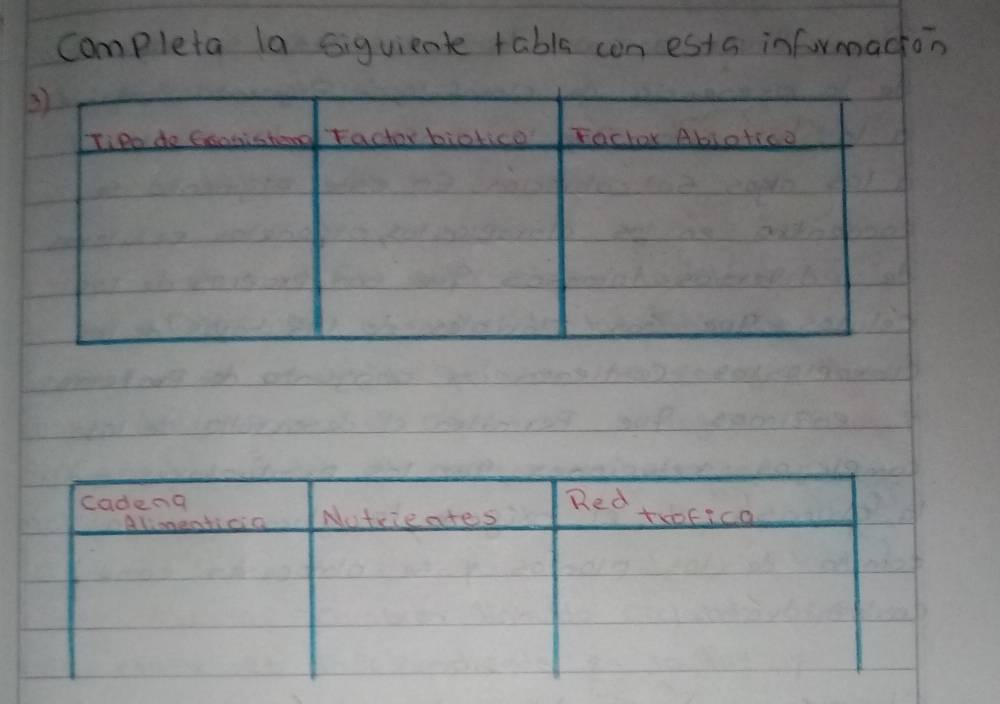 Completa la siguiente tabla con esta información
3)
Tipo de Ecosistema Factor biotico Factor Abiotico
Cadena Alimenticia Nutrientes Red trofica